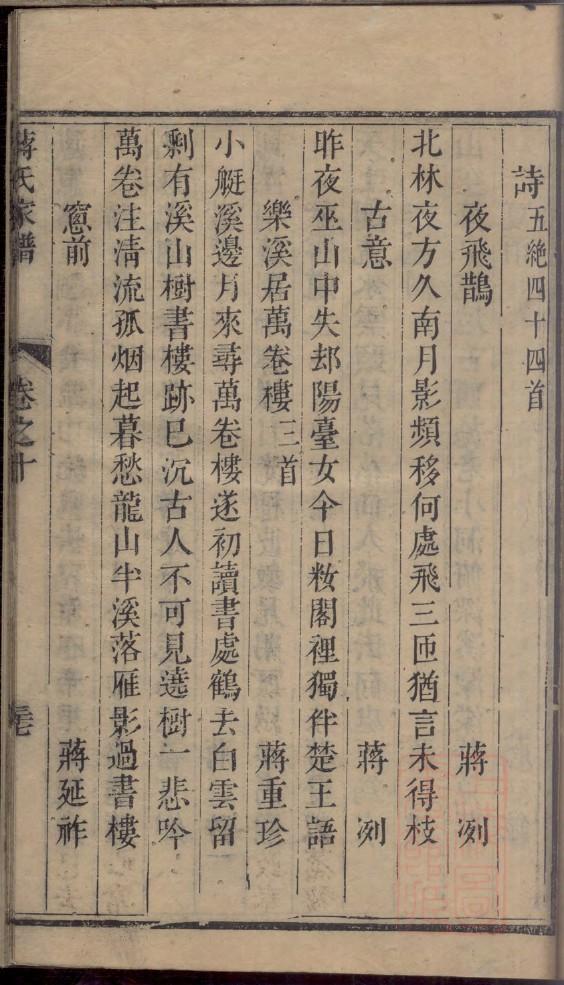 詩五絶四十四首
夜飛鵲　蔣冽
北林夜方久南月影頻移何處飛三匝猶言未得枝
古意　蔣冽
昨夜巫山中失却陽臺女今日妝閣裡獨伴楚王語
樂溪居萬卷樓三首　蔣重珍
小艇溪邊月來尋萬卷樓遂初讀書處鶴去白雲留
剩有溪山樹書樓跡已沉古人不可見遶樹一悲吟
萬卷注清流孤烟起暮愁龍山半溪落雁影過書樓
窻前　蔣延祚
蔣氏家譜　卷之十